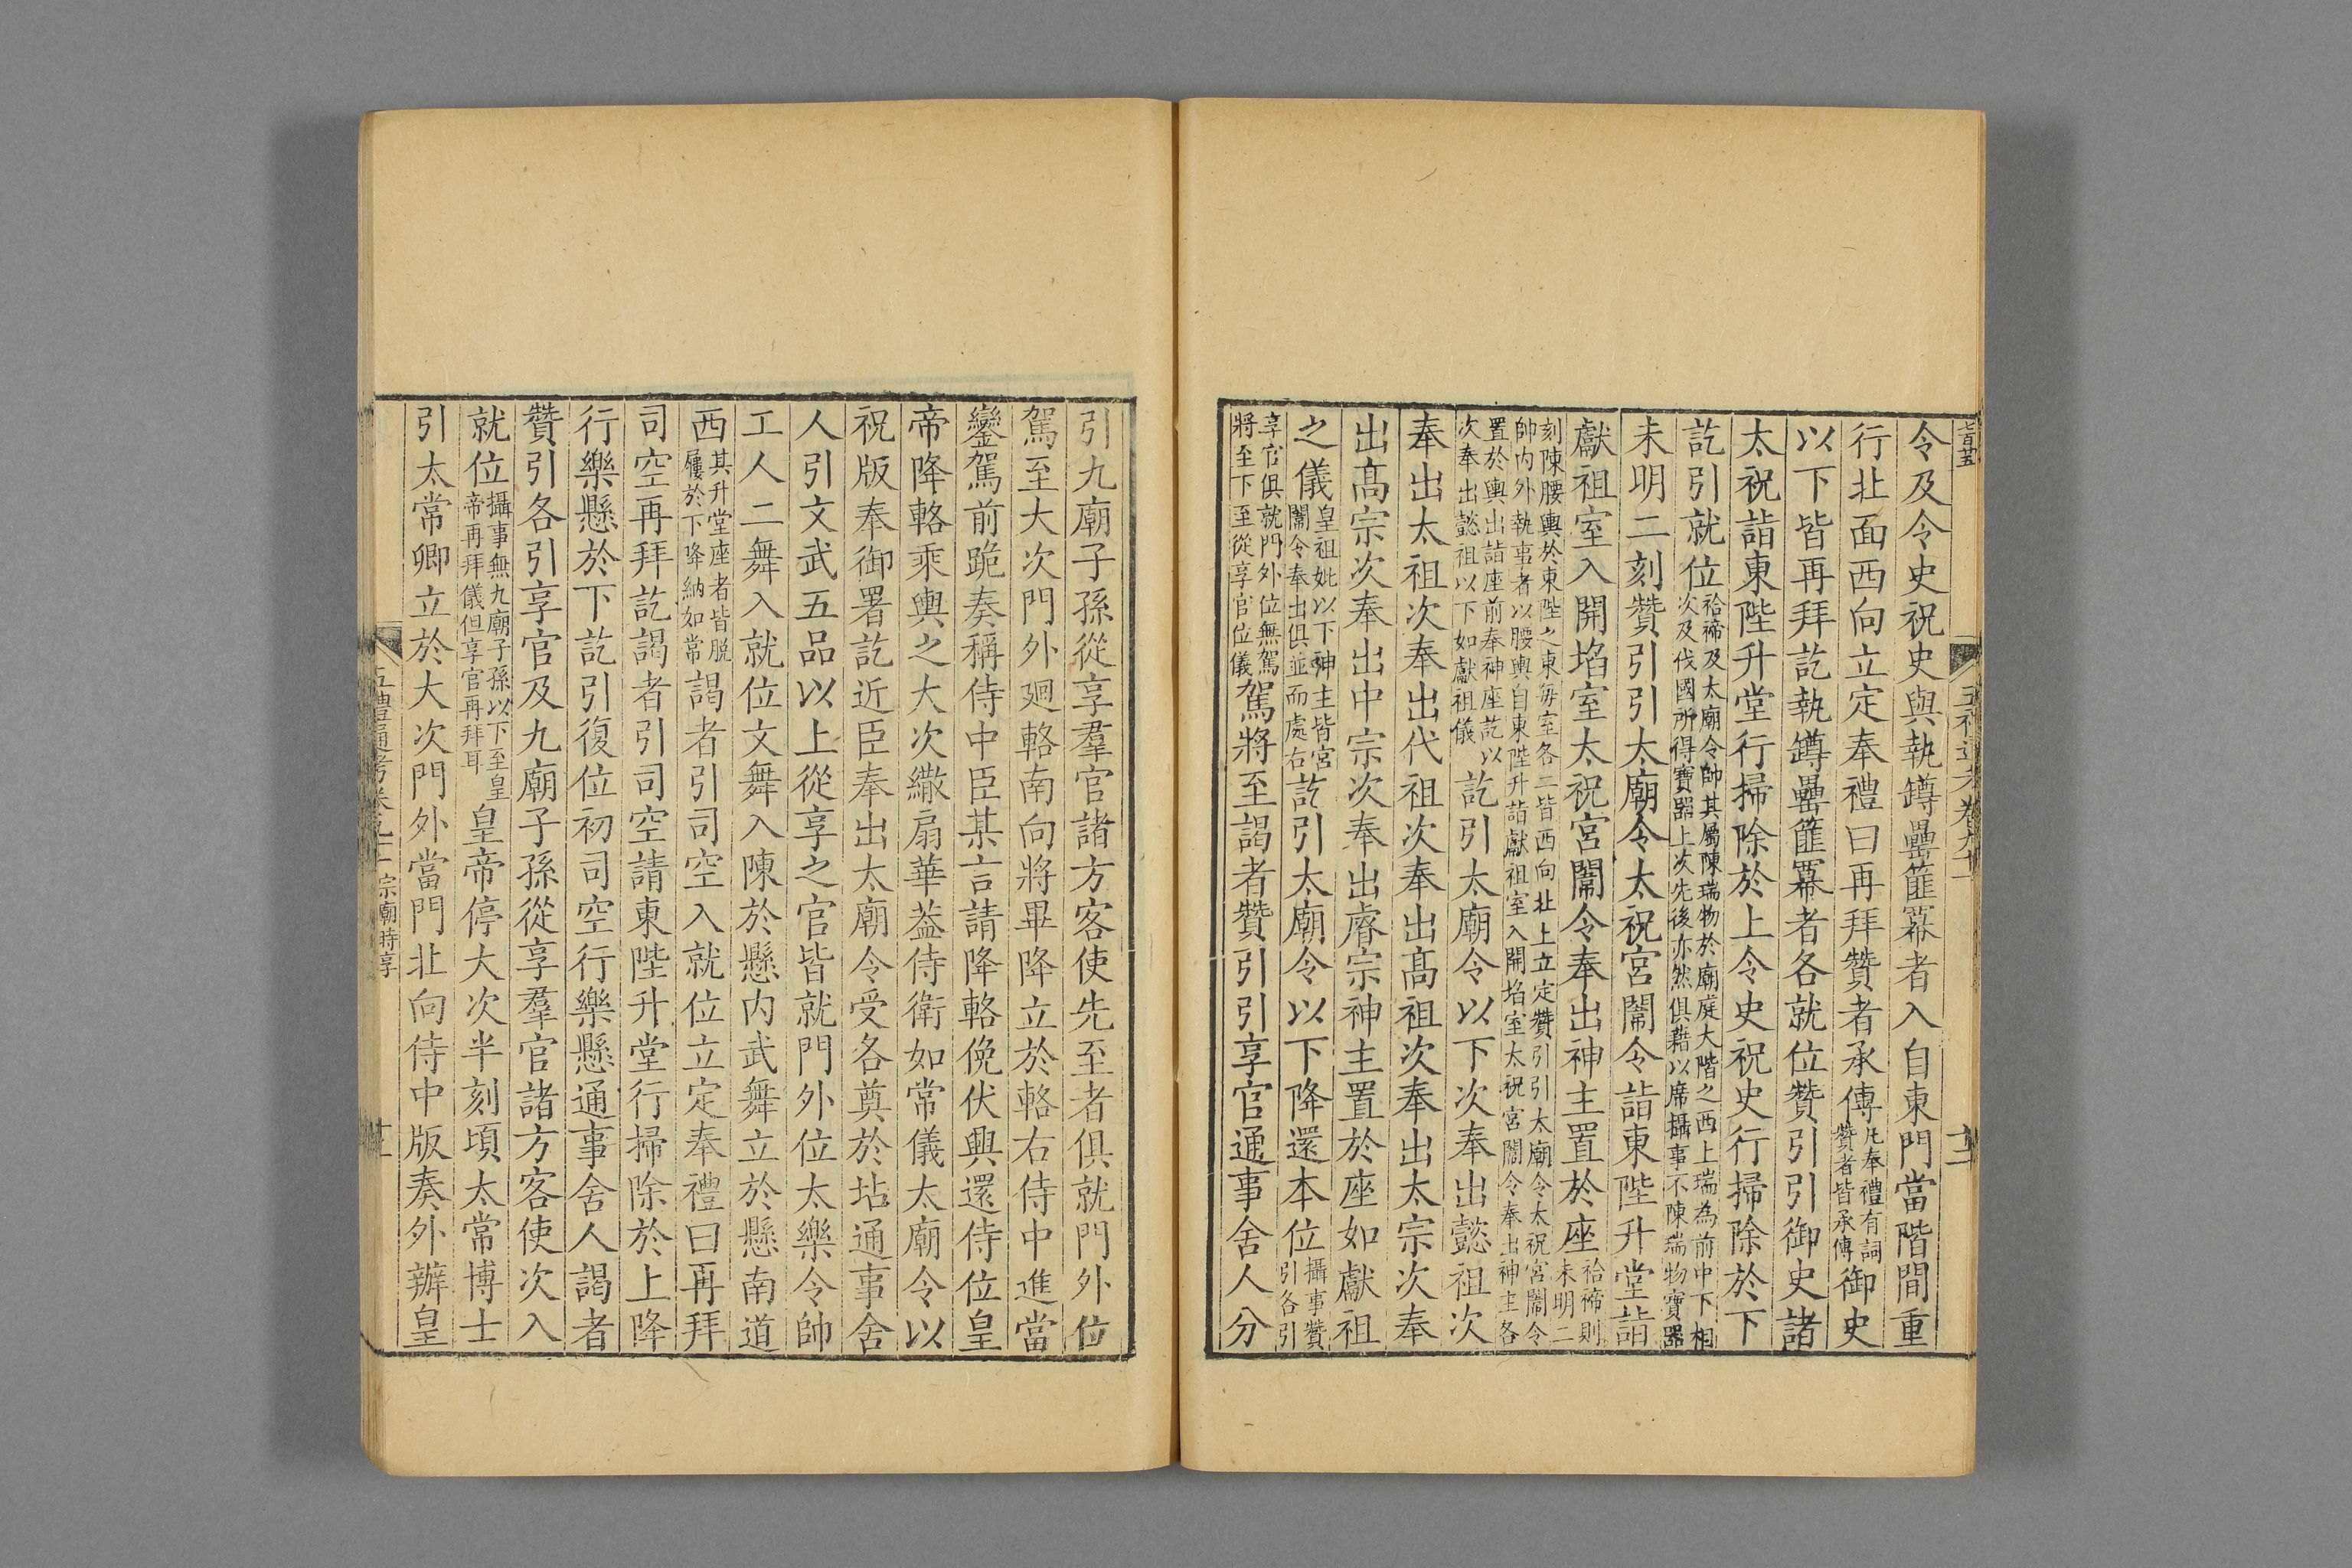 令及令史祝史與執罇罍篚冪者入自東門當階間重
行北面西向立定奉禮曰再拜贊者承傳凡奉禮有詞贊者皆承傳御史
以下皆再拜訖執罇罍篚冪者各就位贊引引御史諸
太祝詣東陛升堂行掃除於上令史祝史行掃除於下
訖引就位祫禘及太廟令帥其屬陳瑞物於廟庭大階之西上瑞為前中下相次及伐國所得寶器上次先後亦然俱藉以席攝事不陳瑞物寶器
未明二刻贊引引太廟令太祝宮闈令詣東陛升堂詣
獻祖室入開埳室太祝宮闈令奉出神主置於座祫禘則未明二
刻陳腰輿於東陛之東每室各二皆西向北上立定贊引引太廟令太祝宮闈令帥內外執事者以腰輿自東陛升詣獻祖室入開埳室太祝宮闈令奉出神主各
置於輿出詣座前奉神座訖以次奉出懿祖以下如獻祖儀訖引太廟令以下次奉出懿祖次
奉出太祖次奉出代祖次奉出高祖次奉出太宗次奉
出高宗次奉出中宗次奉出睿宗神主置於座如獻祖
之儀皇祖妣以下神主皆宮闈令奉出俱並而處右訖引太廟令以下降還本位攝事贊引各引
享官俱就門外位無駕將至下至從享官位儀駕將至謁者贊引引享官通事舍人分
引九廟子孫從享羣官諸方客使先至者俱就門外位
駕至大次門外廻輅南向將畢降立於輅右侍中進當
鑾駕前跪奏稱侍中臣某言請降輅俛伏興還侍位皇
帝降輅乘輿之大次繖扇華蓋侍衛如常儀太廟令以
祝版奉御署訖近臣奉出太廟令受各奠於坫通事舍
人引文武五品以上從享之官皆就門外位太樂令帥
工人二舞入就位文舞入陳於懸內武舞立於懸南道
西其升堂座者皆脫屨於下降納如常謁者引司空入就位立定奉禮曰再拜
司空再拜訖謁者引司空請東陛升堂行掃除於上降
行樂懸於下訖引復位初司空行樂懸通事舍人謁者
贊引各引享官及九廟子孫從享羣官諸方客使次入
就位攝事無九廟子孫以下至皇帝再拜儀但享官再拜耳皇帝停大次半刻頃太常博士
引太常卿立於大次門外當門北向侍中版奏外辦皇
五禮通考卷九十一 宗廟時享